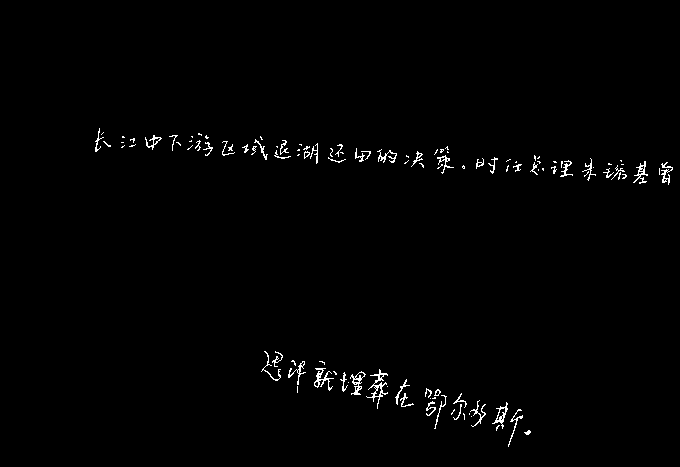 长江中下游区域退湖还田的决策。时任总理朱镕基曾
思汗就埋葬在鄂尔多斯。